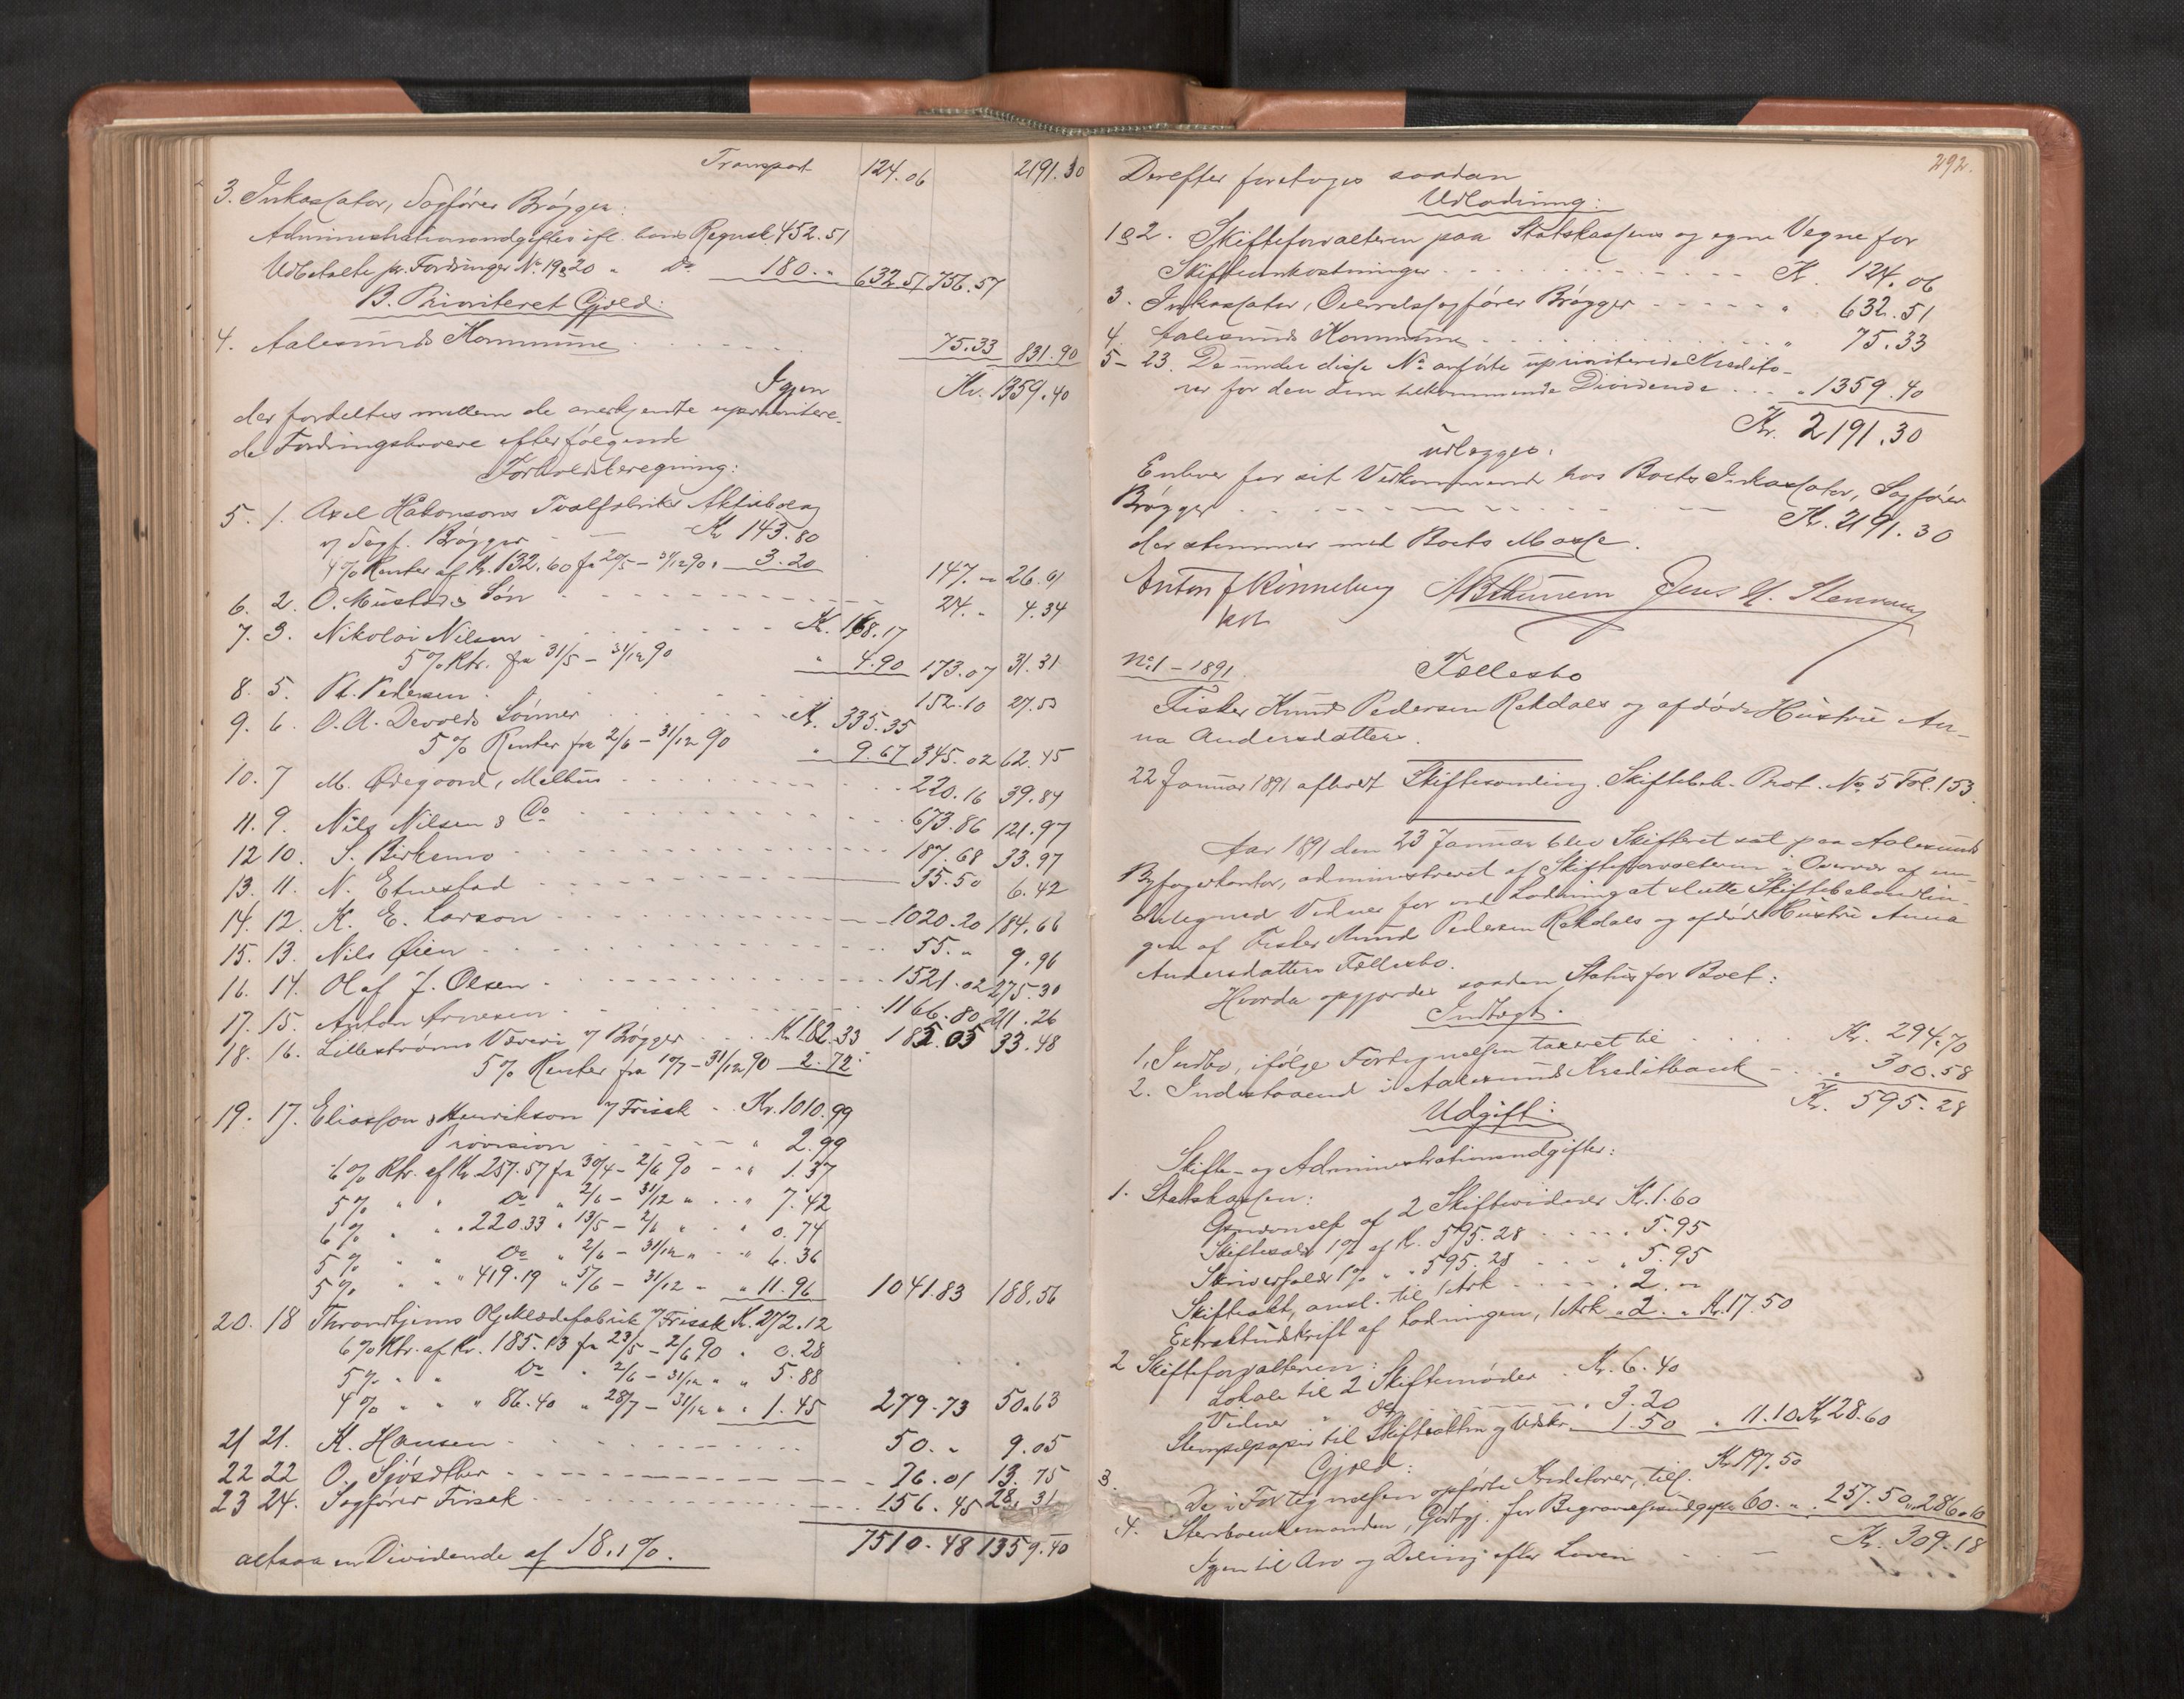 Transport 124.06 2191.30
3. Inkassator, Sagfører Brøgger:
Administrationsudgifter ifl. hans Regnsk. 452.51
Udbetalte pr. Fordringer No 19 & 20 " Do 180. " 632.51 756.57
B. Prioriteret Gjæld:
4. Aalesunds Kommune 75.33 831.90
Igjen Kr. 1359.40
der fordeltes mellem de anerkjendte uprioritere-
de Fordringshavere efter følgende
Forholdsberegning:
5. 1. Axel Håkansons Tvålfabriks Aktiebolag
v/ Sagf. Brøgger Kr. 143.80
4% Renter af Kr. 132.60 fra 20/5 – 31/12 90 " 3.20 147. " 26.61
6. 2. O. Mustad & Søn 24. " 4.34
7. 3. Nikolai Nilsen Kr. 168.17
5% Rtr. fra 31/5 – 31/12 90 " 4.90 173.07 31.31
8. 5. Pedersen 152.10 27.53
9. 6. O. A. Devolds Sønner Kr. 335.35
5% Renter fra 2/6 – 31/12 90 " 9.67 345.02 62.45
10. 7 M. Ødegaard, Melhus 220.16 39.84
11. 9. Nils Nilsen & Co 673.86 121.97
12 10. S. Birkemo 187.68 33.97
13. 11. N. Etnestad 35.50 6.42
14. 12. K. E. Larson 1020.20 184.66
15. 13. Nils Øien 55. " 9.96
16. 14. Olaf J. Olsen 1521.02 275.30
17. 15. Anton Arnesen 1166.80 211.26
18. 16. Lillestrøms Væveri v/ Brøgger Kr. 182.33 185.05 33.48
5% Renter fra 10/7 – 31/12 90 2.72
19. 17. Eliasson & Henrikson v/ Frisak Kr. 1010.99
Provision " 2.99
6% Rtr. af Kr. 257.57 fra 30/4 – 2/6 90 " 1.37
5% " " Do " 2/6 – 31/12 " " 7.42
6% " " 220.33 " 13/5 – 2/6 " " 0.74
5% " " Do " 2/6 – 31/12 " " 6.36
5% " " " 419.19 " 5/6 – 31/12 " " 11.96 1041.83 188.56
20. 18 Throndhjems Oljeklædefabrik v/ Frisak Kr. 272.12
6% Rtr. af Kr. 185.13 fra 23/5 – 2/6 90 " 0.28
5% " " Do " 2/6 – 31/12 " " 5.88
4% " " " 86.40 " 28/7 – 31/12 " " 1.45 279.73 50.63
21 21. K. Hansen 50. " 9.05
22 22 O. 76.01 13.75
23 24. Sagfører Frisak 156.45 28.31
7510.48 1359.40
altsaa en Dividende af 18.1%.
292.
Derefter foretoges saadan
Udlodning:
1 & 2. Skifteforvalteren paa Statskassens og egne Vegne for
Skifteomkostninger Kr. 124.06
3. Inkassator, Overretssagfører Brøgger " 632.51
4. Aalesunds Kommune " 75.33
5 – 23. De under disse No anførte uprioriterede Kredito-
rer for den dem tilkommende Dividende " 1359.40
Kr. 2191.30
udlægges:
Enhver for sit Vedkommende hos Boets Inkassator, Sagfører
Brøgger Kr. 2191.30
der stemmer med Boets Masse.
Anton J Rønneberg Jens
kst
No 1 – 1891. Fællesbo
Fisker Knud Pedersen Rekdals og afdøde Hustru An-
na Andersdatters.
22 Januar 1891 afholdt Skiftesamling. Skiftebeh. Prot. No 5 Fol. 153.
Aar 1891 den 23 Januar blev Skifteret sat paa Aalesunds
Byfogedkontor, administreret af Skifteforvalteren i Overvær af un-
dertegnede Vidner for ved Lodning at slutte Skiftebehandlin-
gen af Fisker Knud Pedersen Rekdals og afdøde Hustru Anna
Andersdatters Fællesbo.
Hvorda opgjordes saadan Status for Boet:
Indtægt.
1. Indbo, ifølge Fortegnelsen taxeret til Kr. 294.70
2. Indestaaend i Aalesunds Kreditbank " 300.58
Kr. 595.28
Udgift:
Skifte- og Administrationsudgifter:
1. Statskassen:
af 2 Skiftevidner Kr. 1.60
Skiftesalær 1% af Kr. 595.28 " 5.95
Skriversalær 1% " " 595.28 " 5.95
Skifteakt, ansl. til 1 Ark " 2. "
Extraktudskrift af Lodningen, 1 Ark " 2. " Kr. 17.50
2 Skifteforvalteren:
Lokale til 2 Skiftemøder Kr. 6.40
Vidner " Do " 3.20
Stempelpapir til Skifteakten og Udskr. 1.50 " 11.10 Kr. 28.60
Gjæld:
3. De i Fortegnelsen opførte Kreditorer, tils. Kr. 197.50
4. Sterboenkemanden, Godtgj. for Begravelsesudgifter 60. " " 257.50 " 286.10
Igjen til Arv og Deling efter Loven Kr. 309.18